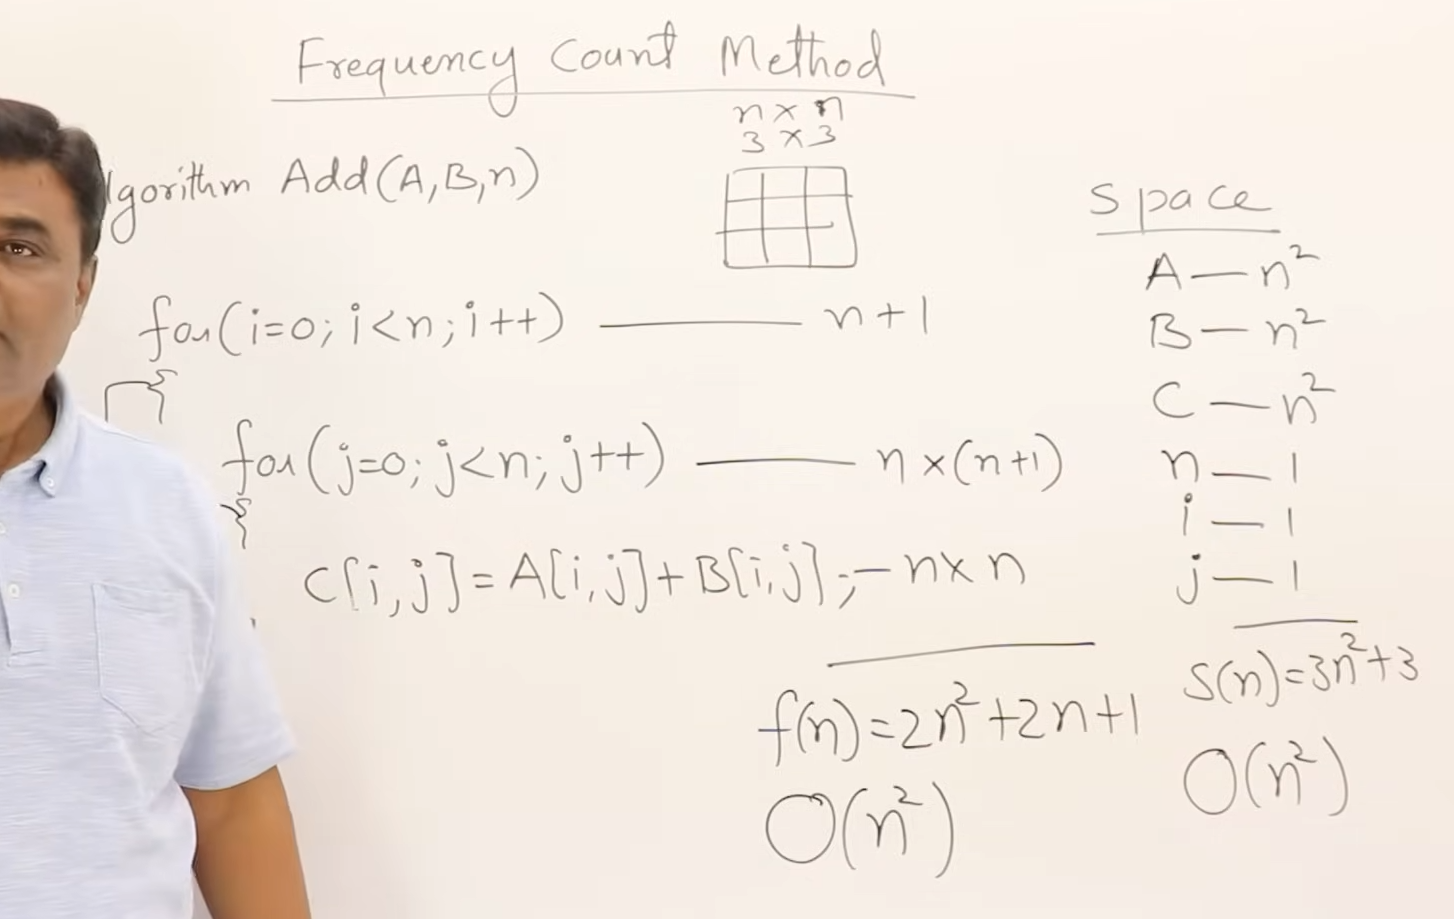 Frequency Count Method
n × n
3 × 3
lgorithm Add(A,B,n)
for(i=0; i<n; i++) — n+1
{
for(j=0; j<n; j++) — n×(n+1)
{
C[i,j]=A[i,j]+B[i,j]; – n×n
f(n)=2n²+2n+1
O(n²)
Space
A — n²
B — n²
C — n²
n — 1
i — 1
j — 1
S(n)=3n²+3
O(n²)